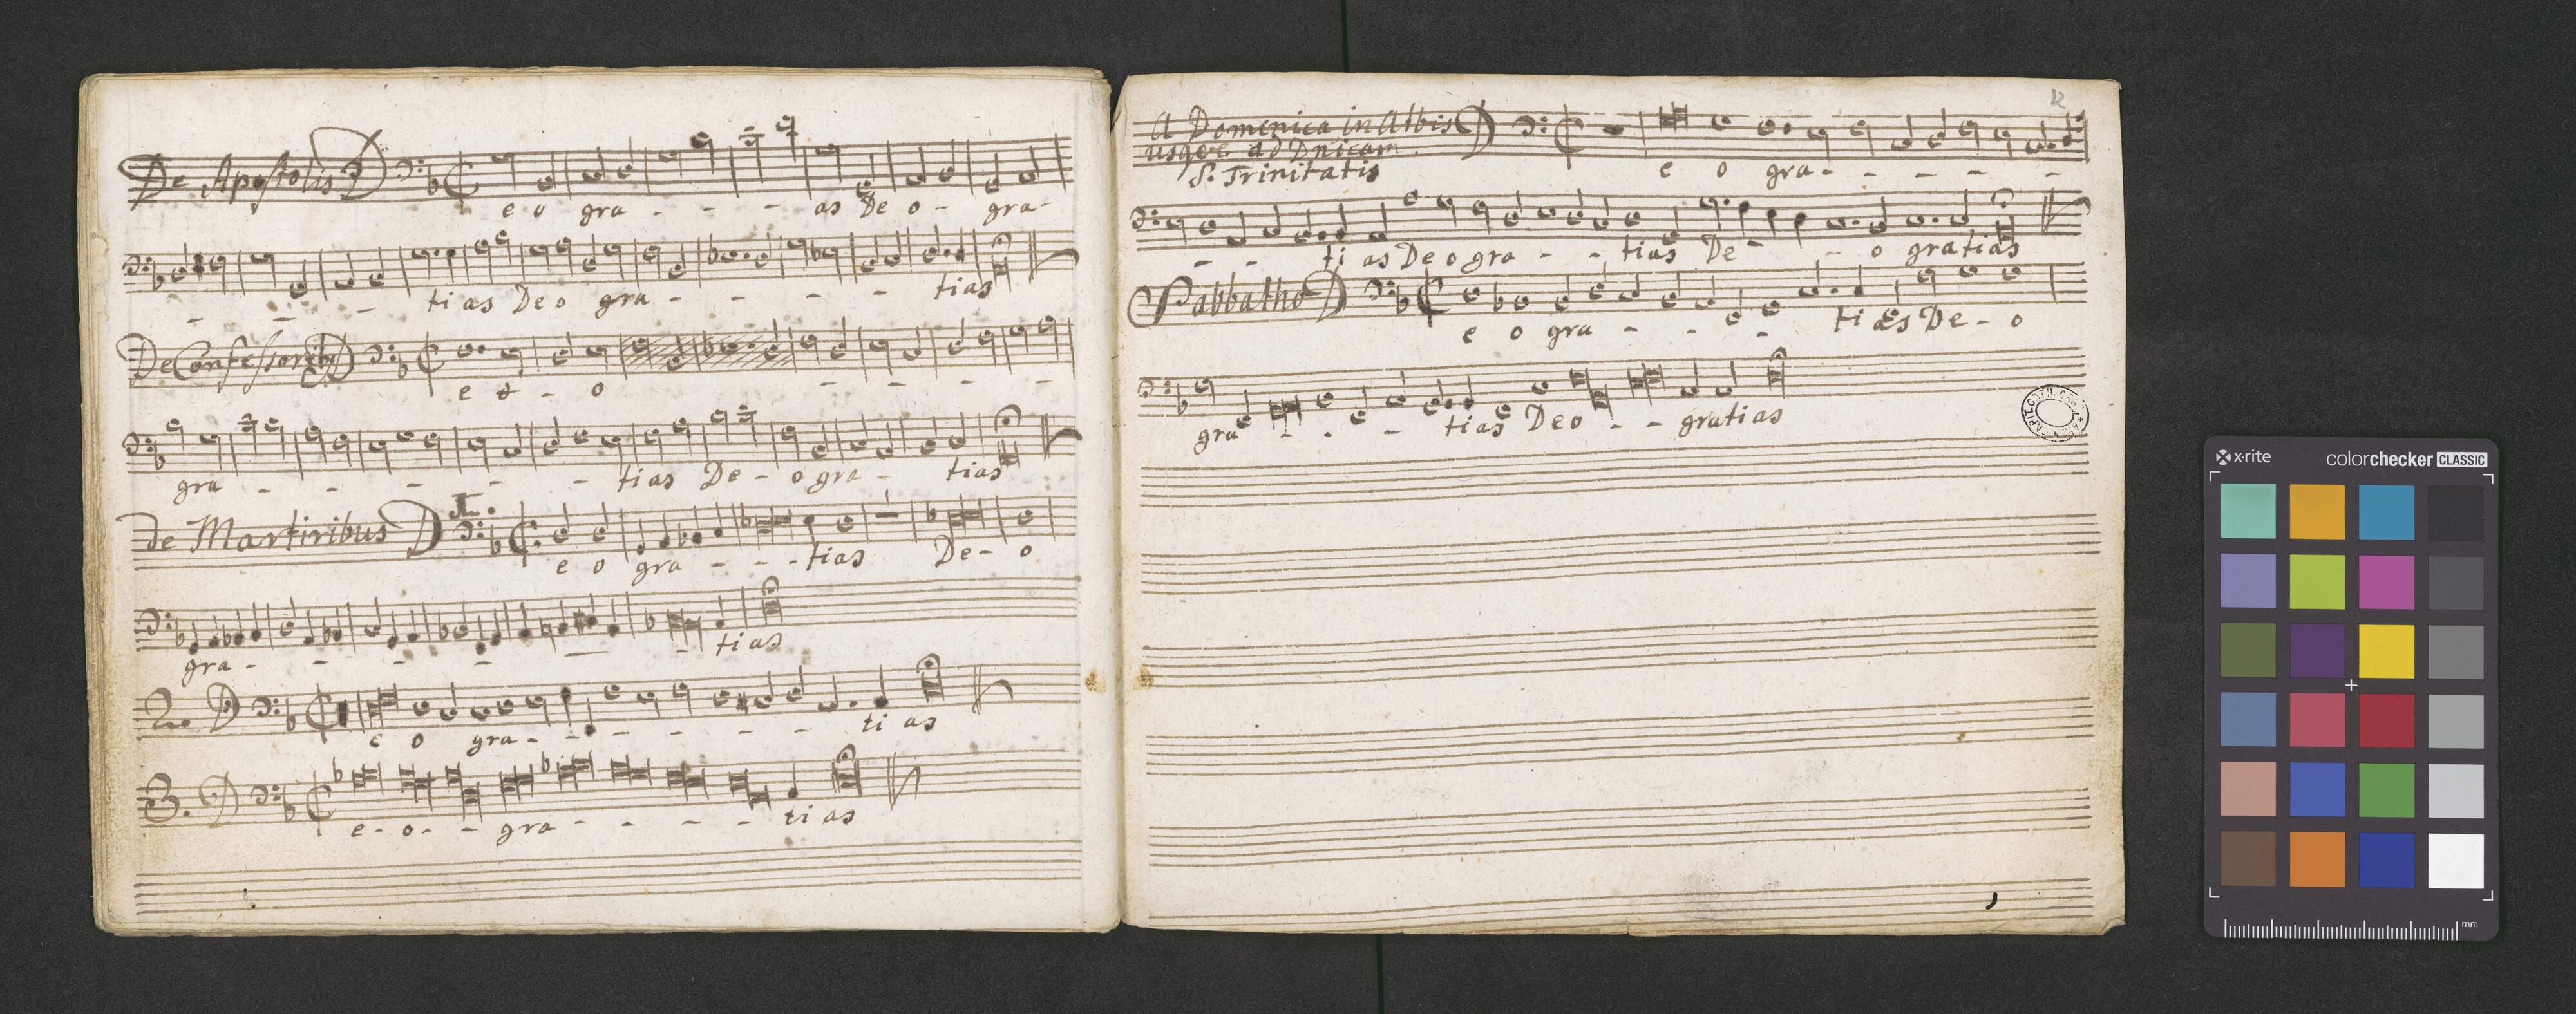 De Apostolis D
eo gra - - - as Deo - gra-
- - - tias Deo gra - - - - tias
De Confessoribus D
e o - o - - - -
gra - - - - - tias De - o gra - tias
de Martiribus D 1.
e o gra - - - tias De - o
gra - - - - - - tias
2. D
e o gra - - - - - - ti as
3. D
e - o - - gra - - - - ti as
12
A Domenica in Albis D
usque ad Dnicam
S. Trinitatis
e o gra - - - - -
- - ti as Deo gra - - tias De - - o gratias
Sabbatho D
e o gra - - - ti as De - o
gra - - - tias Deo - - gratias
x-rite
colorchecker CLASSIC
mm